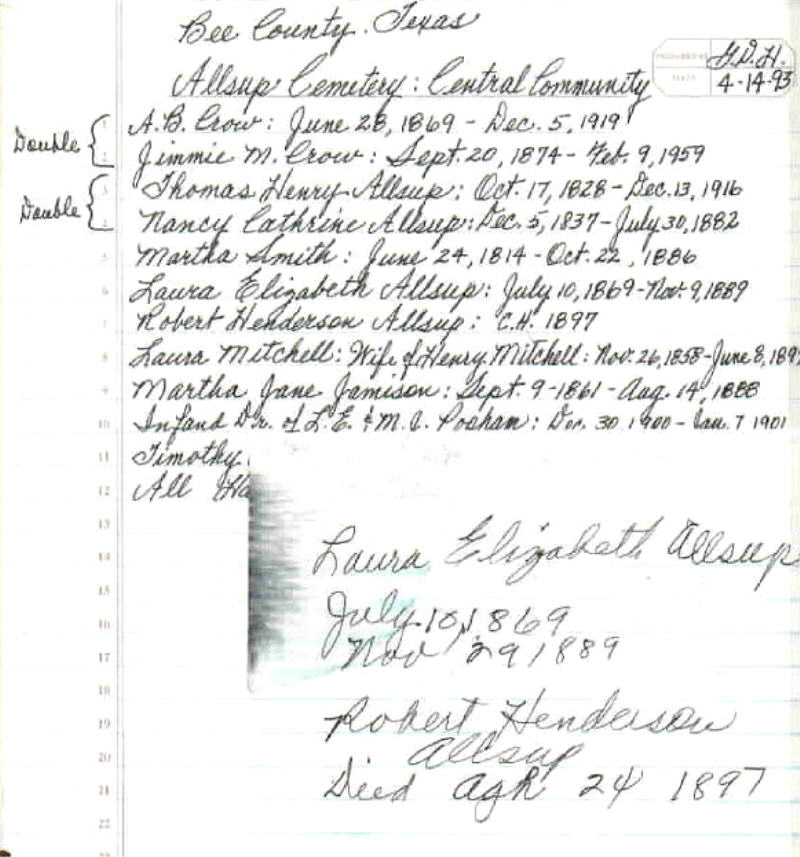 Bee County. Texas
Allsup Cemetery: Central Community
G.D.H.
4-14-93
Double
1 A.B. Crow: June 28, 1869 - Dec. 5, 1919
2 Jimmie M. Crow: Sept. 20, 1874 - Feb. 9, 1959
Double
3 Thomas Henry Allsup: Oct. 17, 1828 - Dec. 13, 1916
4 Nancy Cathrine Allsup: Dec. 5, 1837 - July 30, 1882
5 Martha Smith: June 24, 1814 - Oct. 22, 1886
6 Laura Elizabeth Allsup: July 10, 1869 - Nov. 9, 1889
7 Robert Henderson Allsup: C.H. 1897
8 Laura Mitchell: Wife of Henry Mitchell: Nov. 26, 1858 - June 8, 189
9 Martha Jane Jamison: Sept. 9 - 1861 - Aug. 14, 1888
10 Infand Dr. of L.E. & M.C. : Dec. 30 1900 - Jan. 7 1901
11 Timothy
12 All
13
14 Laura Elizabeth Allsup
15
16 July 10, 1869
17 Nov 29 1889
18
19 Robert Henderson
20 Allsup
21 Died 24 1897
22